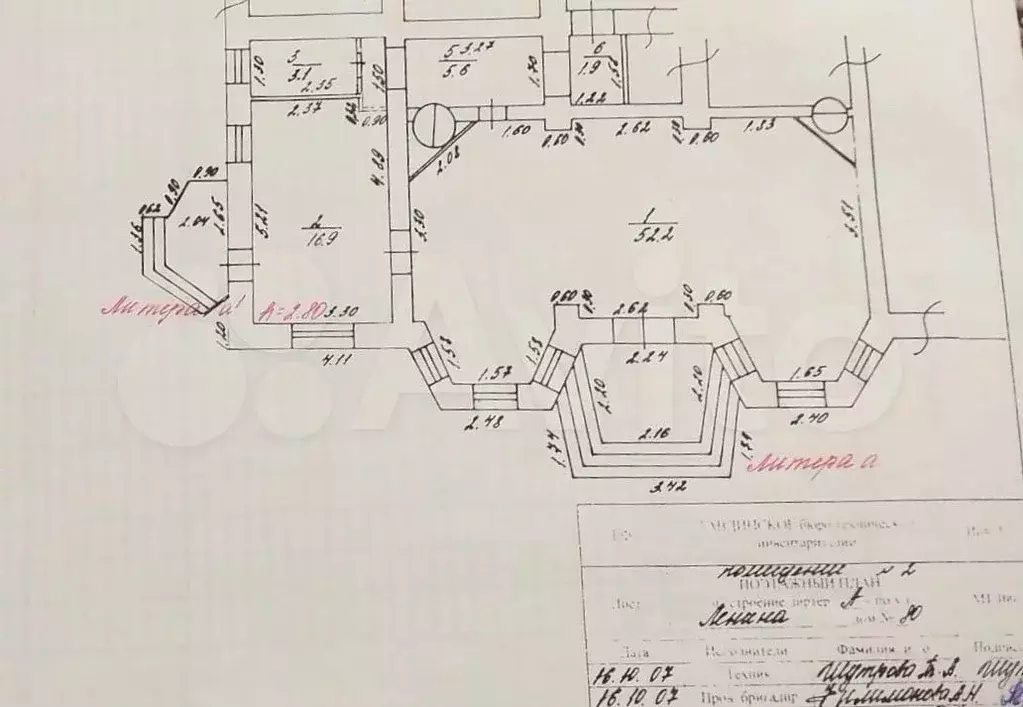 3
3.1
2.35
1.30
2.37
1.50
0.90
5 3.27
5.6
1.70
6
1.9
1.22
1.60
0.60
2.62
0.60
1.33
2.08
4.89
0.90
0.90
0.62
2.04
2.65
1.36
5.21
2
16.9
2.30
1
52.2
3.51
Литера а'
h=2.80
3.30
1.20
4.11
0.60
2.62
0.60
2.24
1.53
1.57
1.65
2.20
2.20
2.16
2.48
2.40
1.74
3.42
Литера а
бюро технической
инвентаризации
помещение №2
ПОЭТАЖНЫЙ ПЛАН
строение литер А
Ленина дом № 80
Дата Исполнители Фамилия и о
16.10.07 Техник
16.10.07 Пров. бригадир
Avito